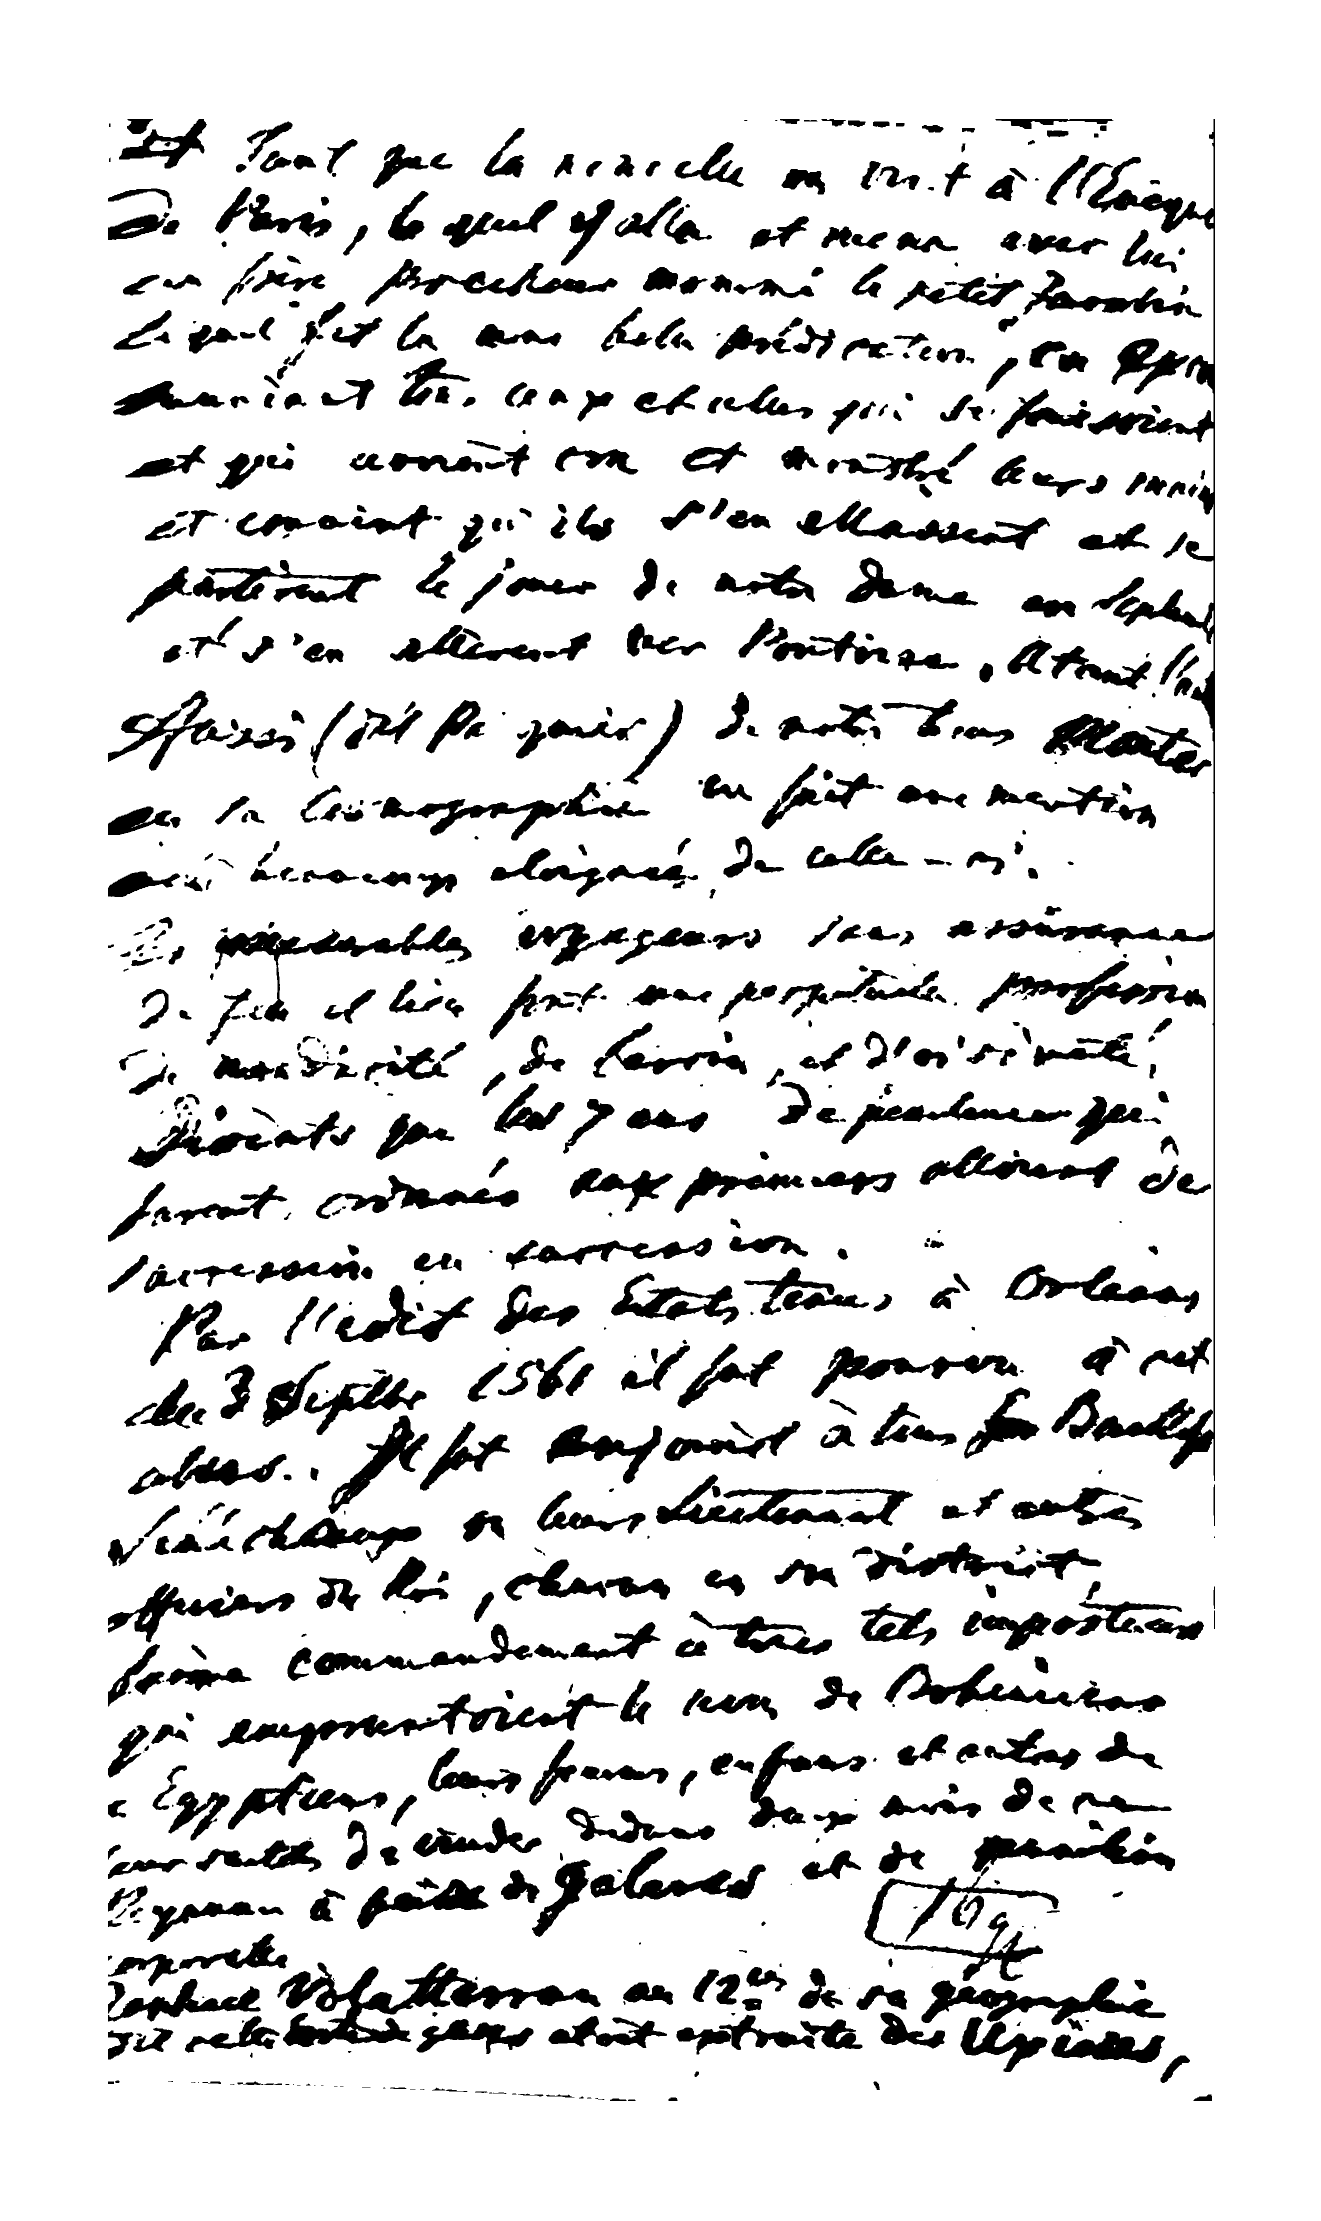 Et Tant que la nouvelle en vint à l'Evêque
de Paris, lequel y alla et mena avec lui
un frère Precheur nommé le petit Jacobin
lequel fit la une belle prédication, en
tous ceux et celles qui se faisoient
et qui avoient cru et montré leurs mains
et convint qu'ils s'en allassent et se
partirent le jour de notre dame en Septemb
et s'en allerent vers Pontoise,
(dit Pasquier) de notre tems Monster
en sa Cosmographie en fait une mention
beaucoup eloignée de celle-ci.
Ces miserables voyageurs sans assurance
de feu et lieu font une perpetuelle profession
de mendicité, de larcin, et d'oisiveté,
disants que les 7 ans de penitence qui
furent ordonnés aux premiers alloient de
succession en succession.
Par l'edit des Etats tenus à Orleans
du 3 Septbre 1561 il fut pourvu à cet
abus.. Il fut enjoint à tous Baillifs
Sénéchaux ou leurs Lieutenant et autres
officiers du Roi, chacun en son district,
faire commandement à tous tels imposteurs
qui empruntoient le nom de Bohemiens
Egyptiens, leurs femmes, enfans et autres de
leur suitte de vuider dedans deux mois de ce
Royaume à peine de galeres et de punition
corporelle
Raphael Volatterran au 12me de sa géographie
dit cette sorte de gens etoit extraite des Uxiens,